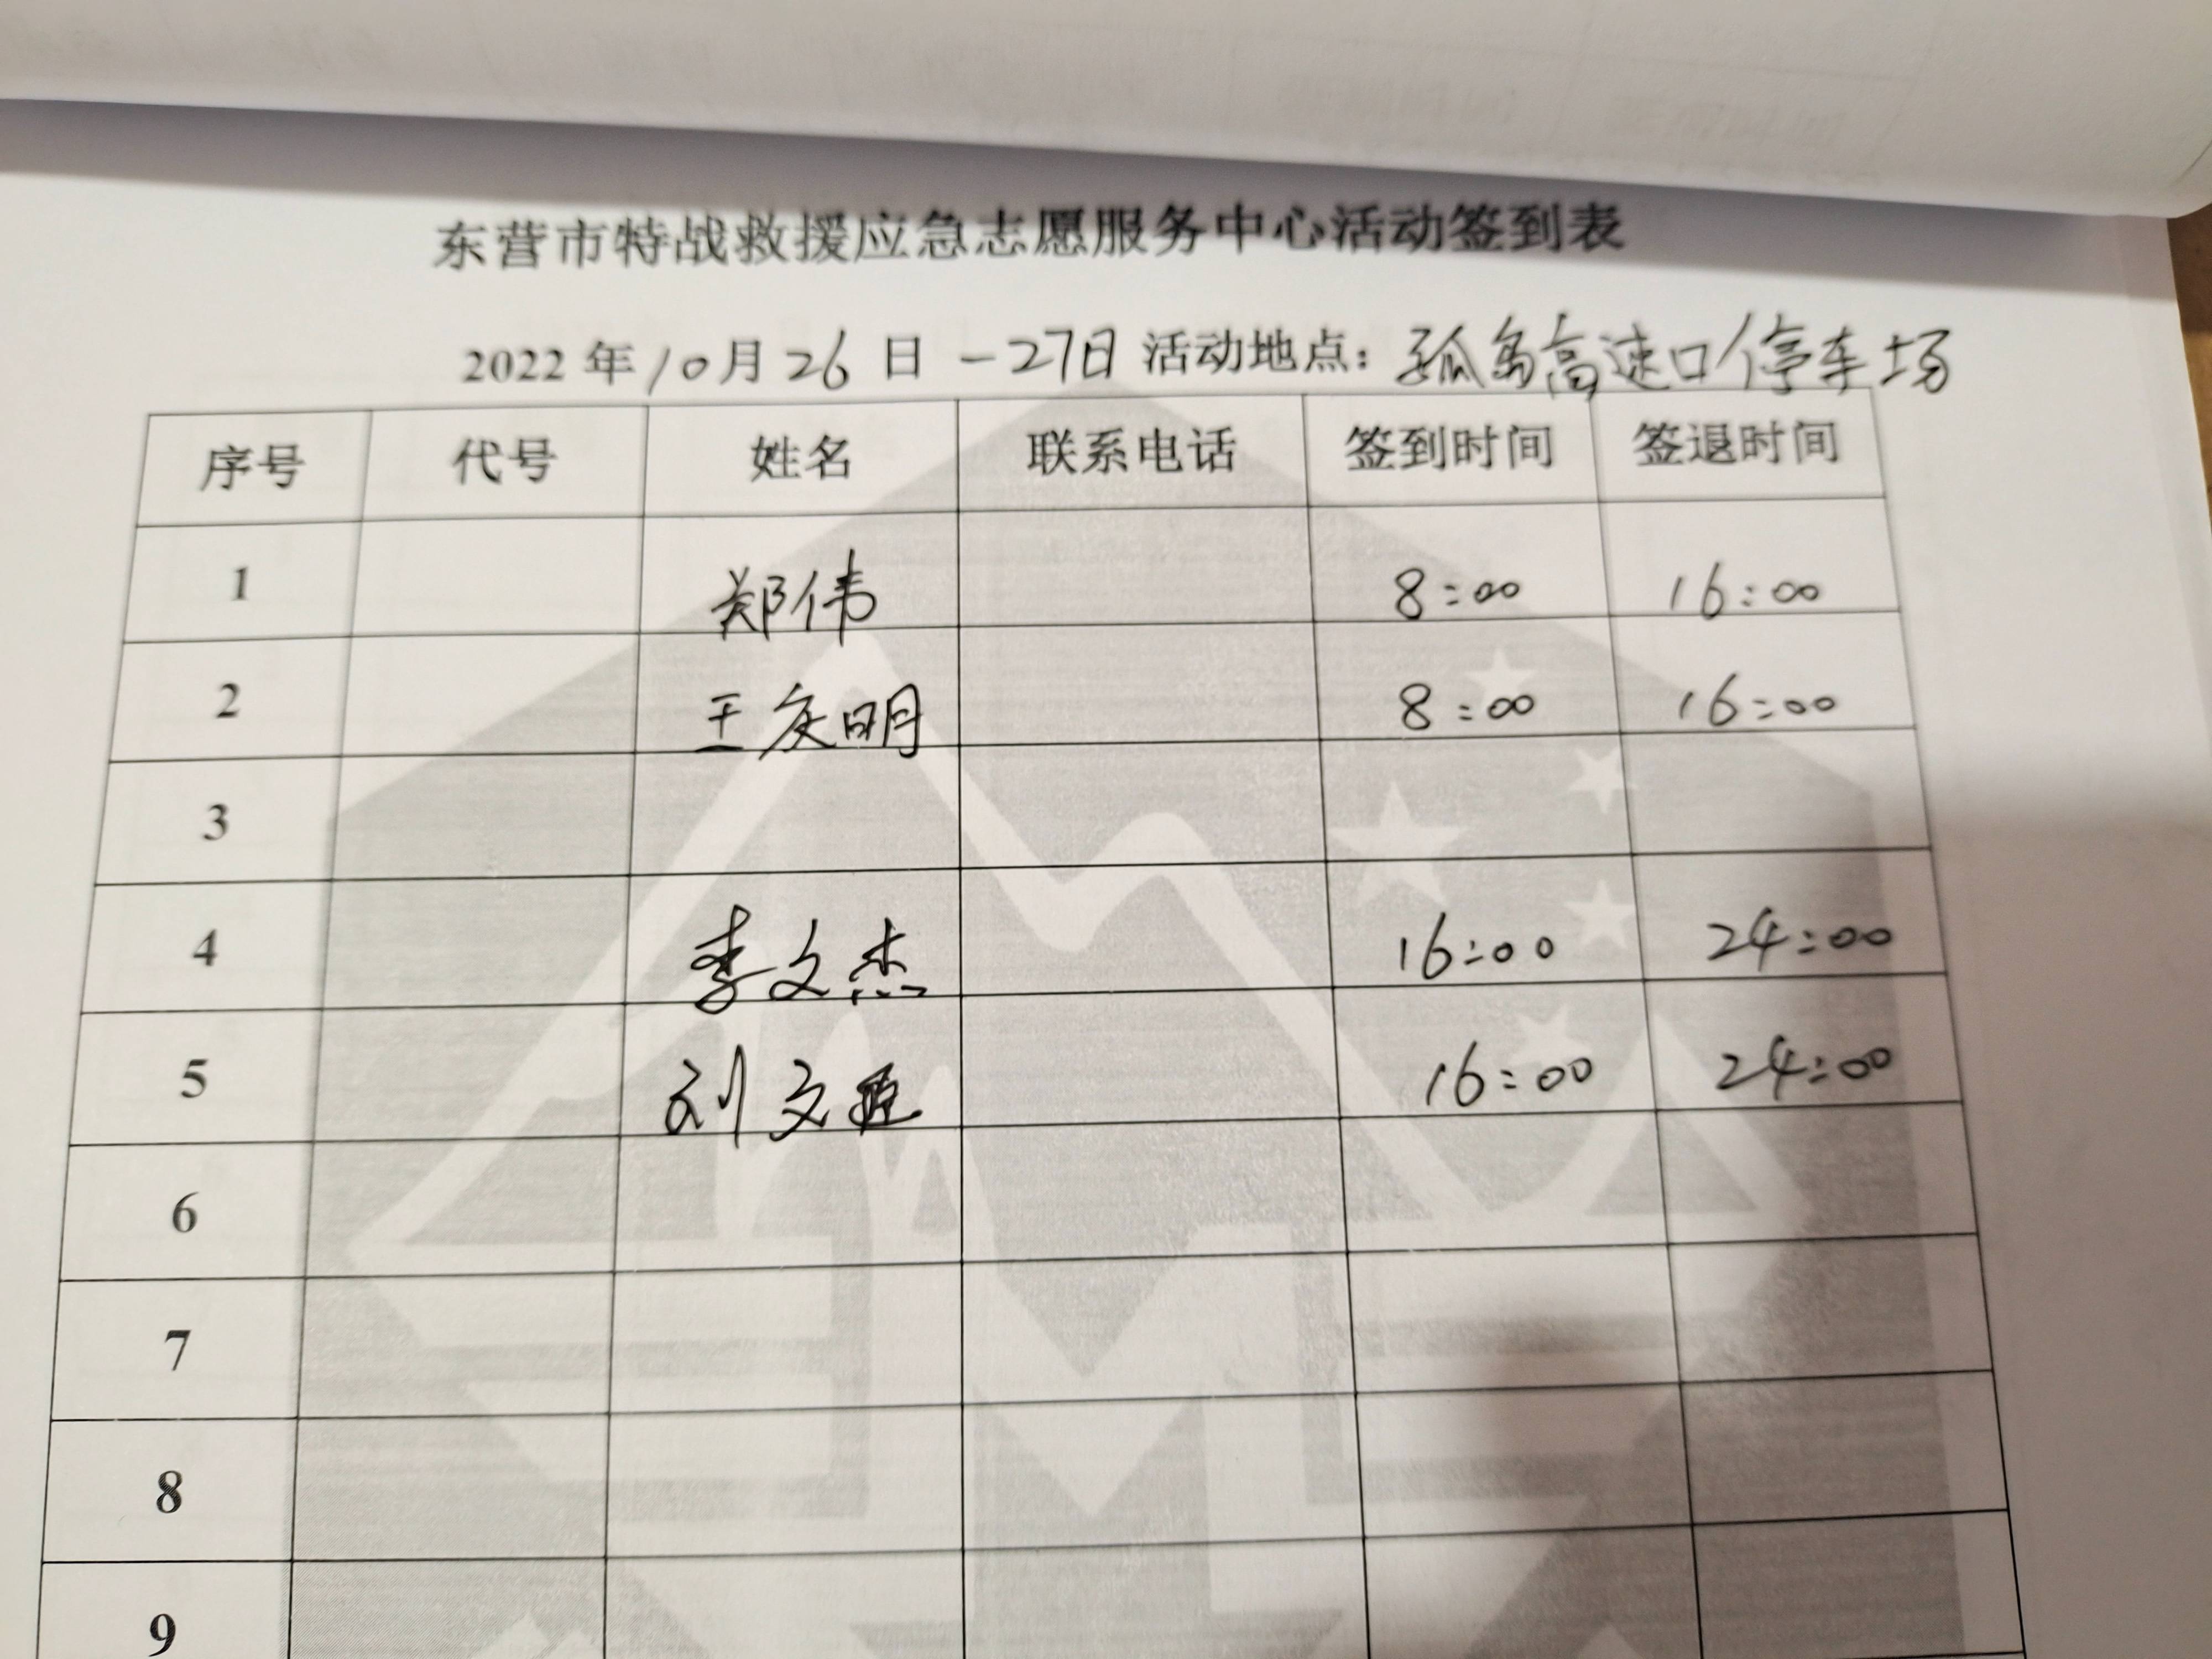 东营市特战救援应急志愿服务中心活动签到表
2022年10月26日-27日 活动地点：孤岛高速口停车场
序号 代号 姓名 联系电话 签到时间 签退时间
1 郑伟 8:00 16:00
2 王庆明 8:00 16:00
3
4 李文杰 16:00 24:00
5 刘文 16:00 24:00
6
7
8
9